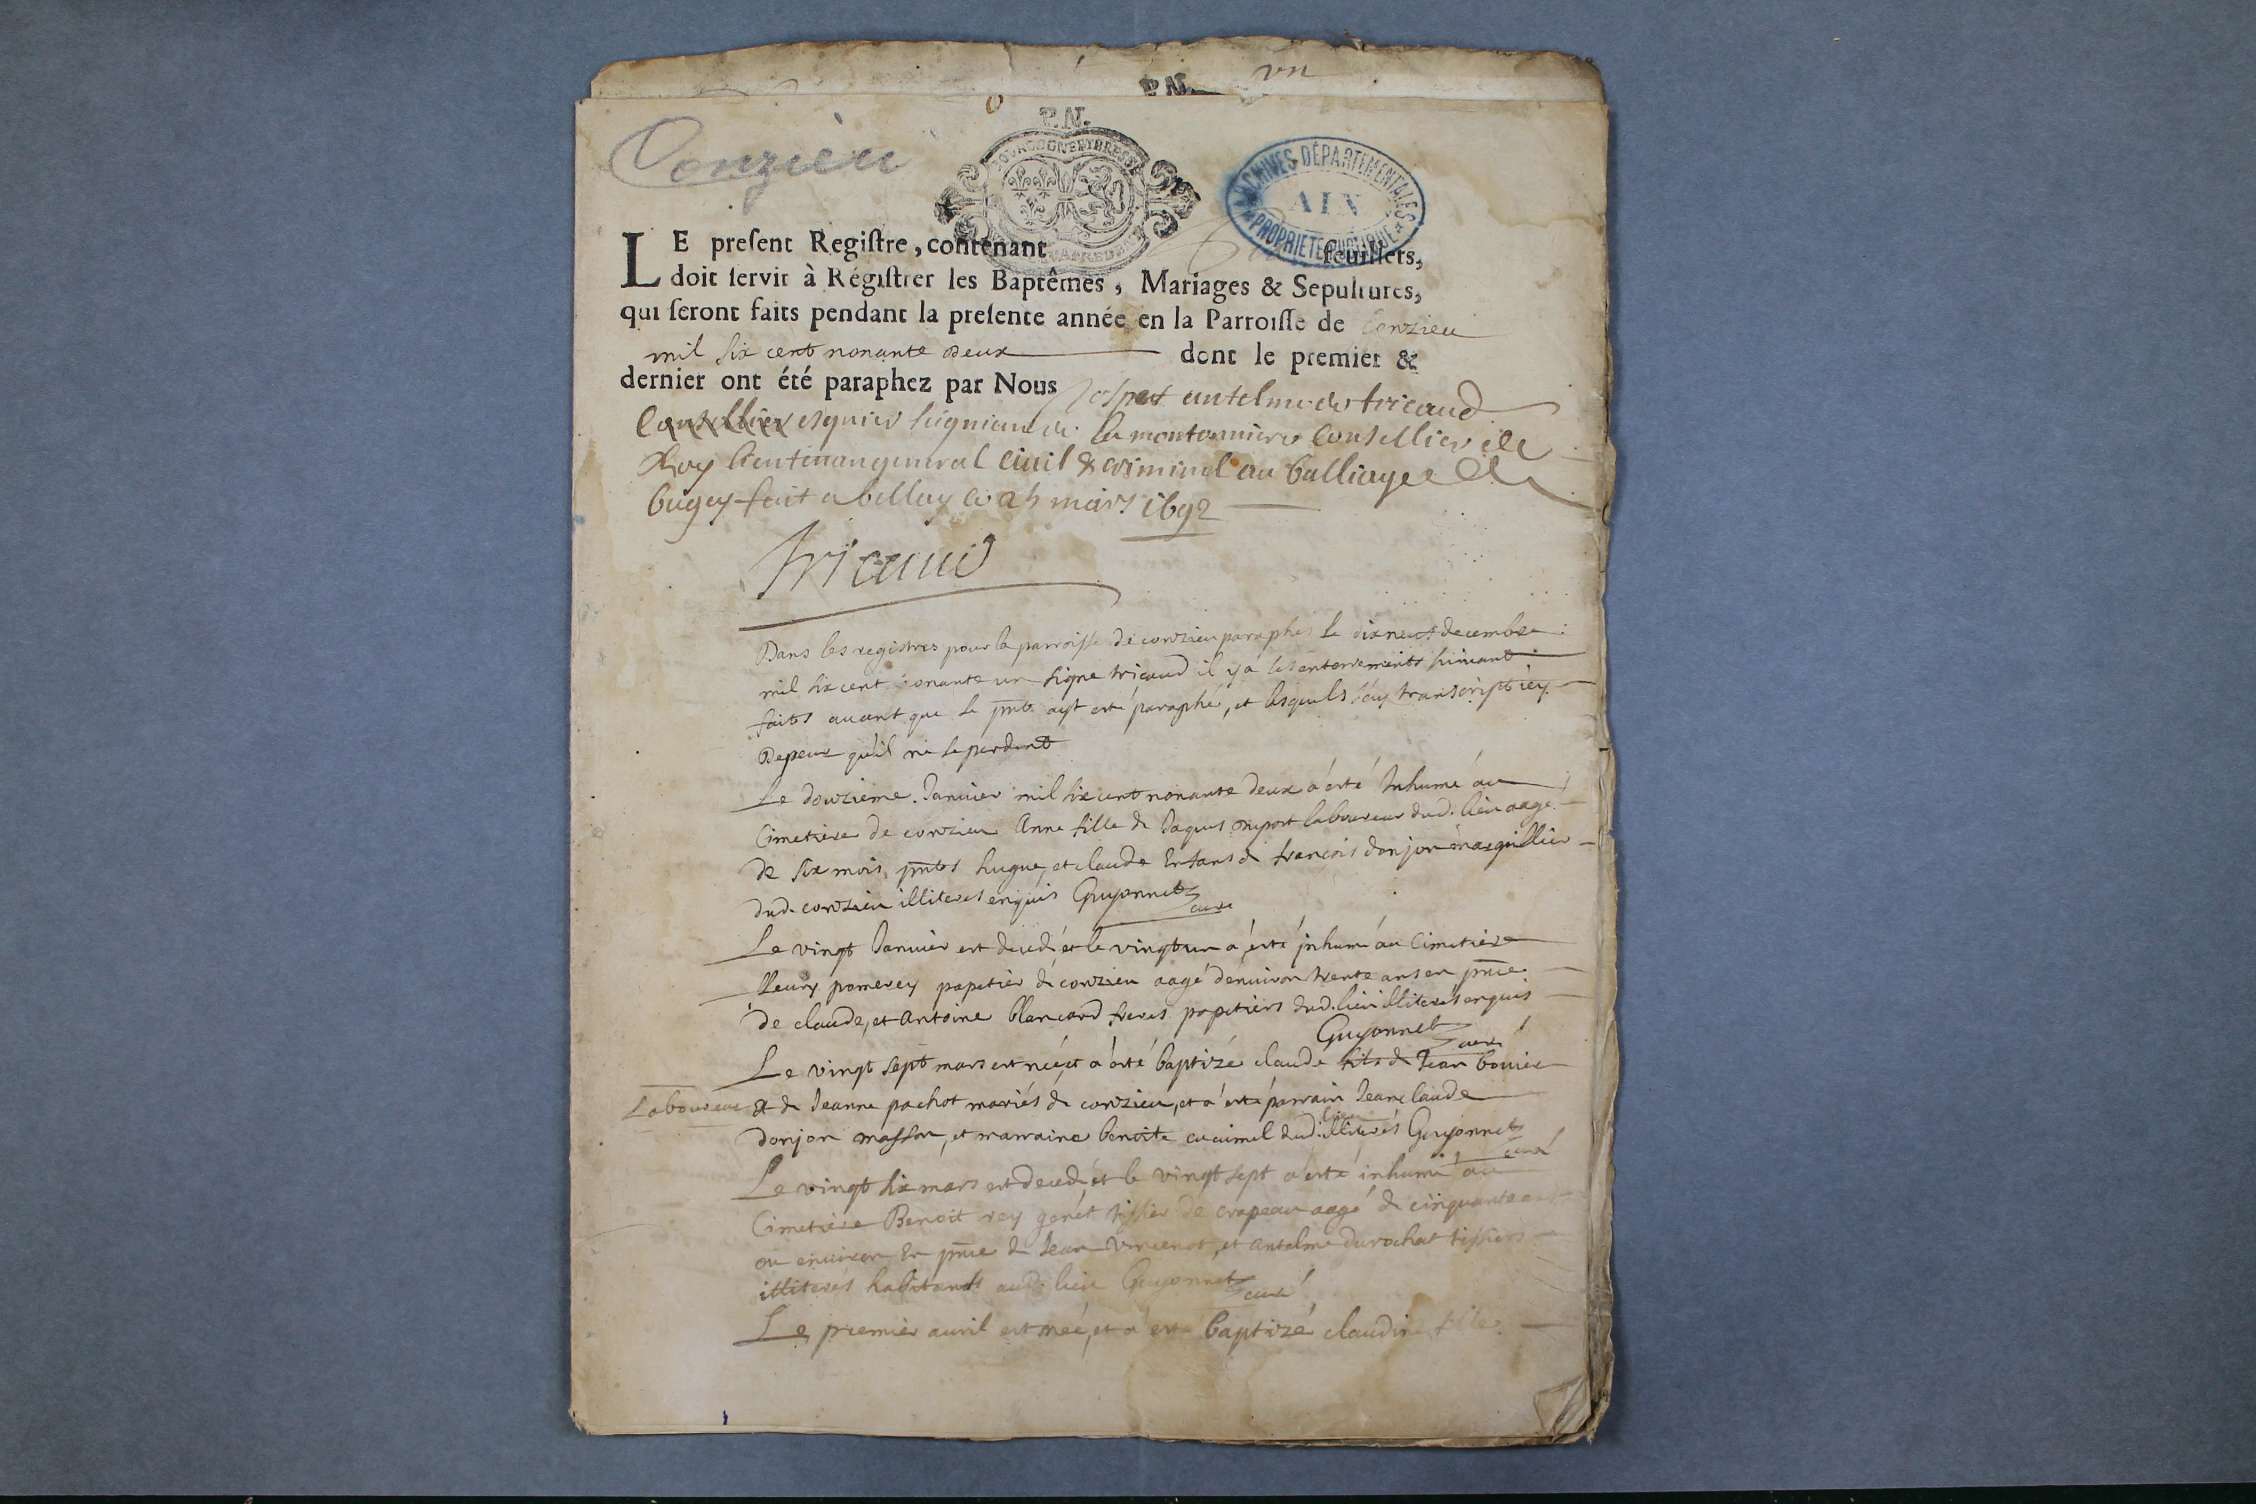 vn
P.N.
P.N.
Conzieu
BOURGOGNE ET BRESSE
ARCHIVES DÉPARTEMENTALES
AIN
PROPRIÉTÉ PUBLIQUE
LE present Registre, contenant feuillets,
doit servir à Régistrer les Baptêmes, Mariages & Sepultures,
qui seront faits pendant la presente année en la Parroisse de Conzieu
mil six cent nonante deux dont le premier &
dernier ont été paraphez par Nous Jospect antelme de tricaud
Consellier esquier seignieur de la montonniere Consellier de
Roy lieutenan general civil & criminel au balliage de
bugey fait a bellay ce 25 mars 1692
Tricaud
Dans les registres pour la parroisse de conzieu paraphés le dixneuf decembre
mil six cent nonante un signe tricaud il y a les enterrements suivant
faits avant que le pnt. ayt esté paraphé, et lesquels j'ay transcript icy
Depeur qu'il ne se perdent
Le douzieme Janvier mil six cent nonante deux a esté Inhumé au
Cimetiere de conzieu Anne fille de Jaques duport laboureur dud. lieu aagé
de six mois pntes hugue, et claude Enfans de françois donjon marguillier
dud. conzieu illiterés enquis Guyonnet curé
Le vingt Janvier est decedé et le vingt un a esté inhumé au Cimetiere
fleury pomerey papetier de conzieu aagé d'environ trente ans en pnce
de claude, et Antoine blancard freres papetiers dud. lieu illiterés enquis
Guyonnet curé
Le vingt sept mars est né, et a esté baptizé claude fils de Jean bovier
Laboureur et de Jeanne pachot mariés de conzieu, et a esté parrain Jean claude
lieu
donjon masson, et marraine benoite cucimel dud. illiterés Guyonnet
curé
Le vingt six mars est decedé et le vingt sept a esté inhumé au
Cimetiere Benoit rey genét tissier de crapeau aagé de cinquante ans
ou environ En pnce de Jean Vincenot, et antelme durochat tissiers
illiterés habitants aud. lieu Guyonnet curé
Le premier avril est née, et a esté baptizé claudine fille